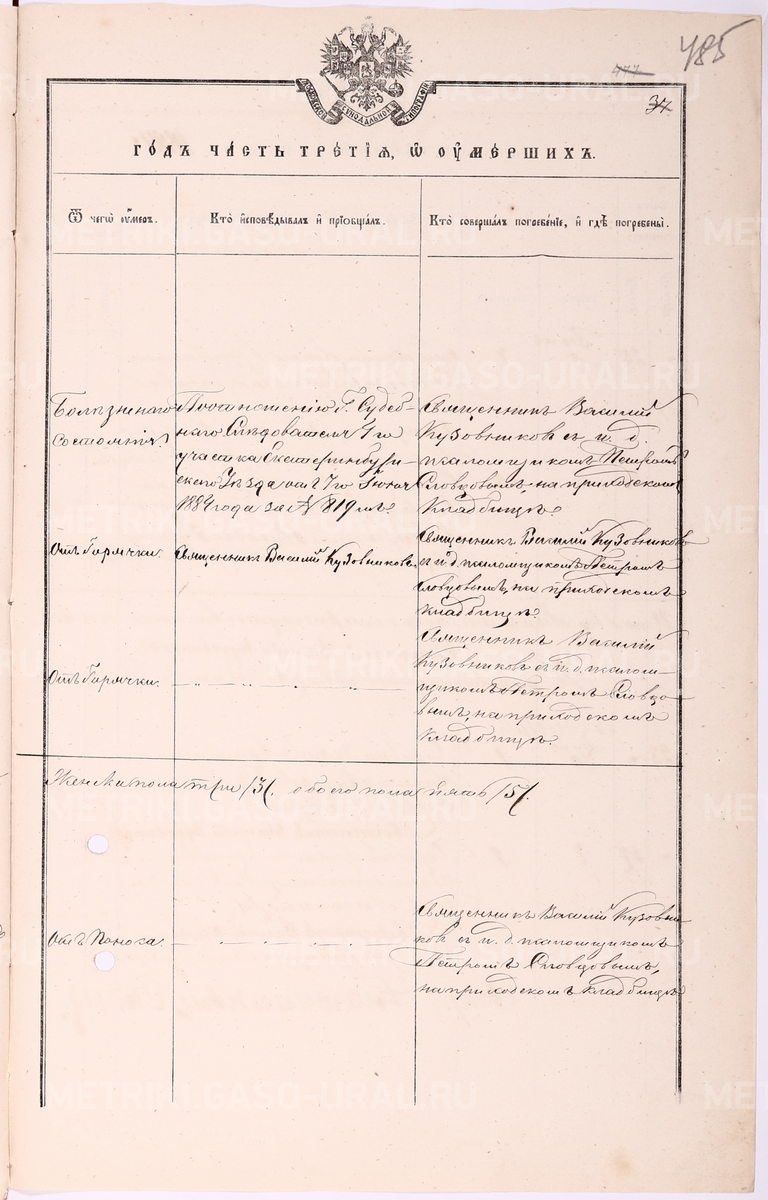 485
477
37.
ГОДЪ ЧАСТЬ ТРЕТІѦ, Ѡ ОУМЕРШИХЪ.
Ѿ чегѡ оумеръ.
Кто исповѣдывалъ и пріобщалъ.
Кто совершалъ погребеніе, и гдѣ погребены.
Болѣзненаго
состоянія.
По отношенію Г. Судеб-
наго Слѣдователя 1го
участка Екатеринбург-
скаго Уѣзда отъ 27го Іюня
1884 года за № 819мъ.
Священникъ Василій
Кузовниковъ съ и. д.
псаломщикомъ Петромъ
Словцовымъ, на приходскомъ
кладбищѣ.
Отъ Горячки.
Священникъ Василій Кузовниковъ.
Священникъ Василій Кузовниковъ
съ и. д. псаломщикомъ Петромъ
Словцовымъ, на приходскомъ
кладбищѣ.
Отъ Горячки.
Священникъ Василій
Кузовниковъ съ и. д. псалом-
щикомъ Петромъ Словцо-
вымъ, на приходскомъ
кладбищѣ.
Женска пола три /3/. обоего пола пять /5/.
Отъ Поноса.
Священникъ Василій Кузовни-
ковъ съ и. д. псаломщикомъ
Петромъ Словцовымъ,
на приходскомъ кладбищѣ.
METRIKI.GASO-URAL.RU